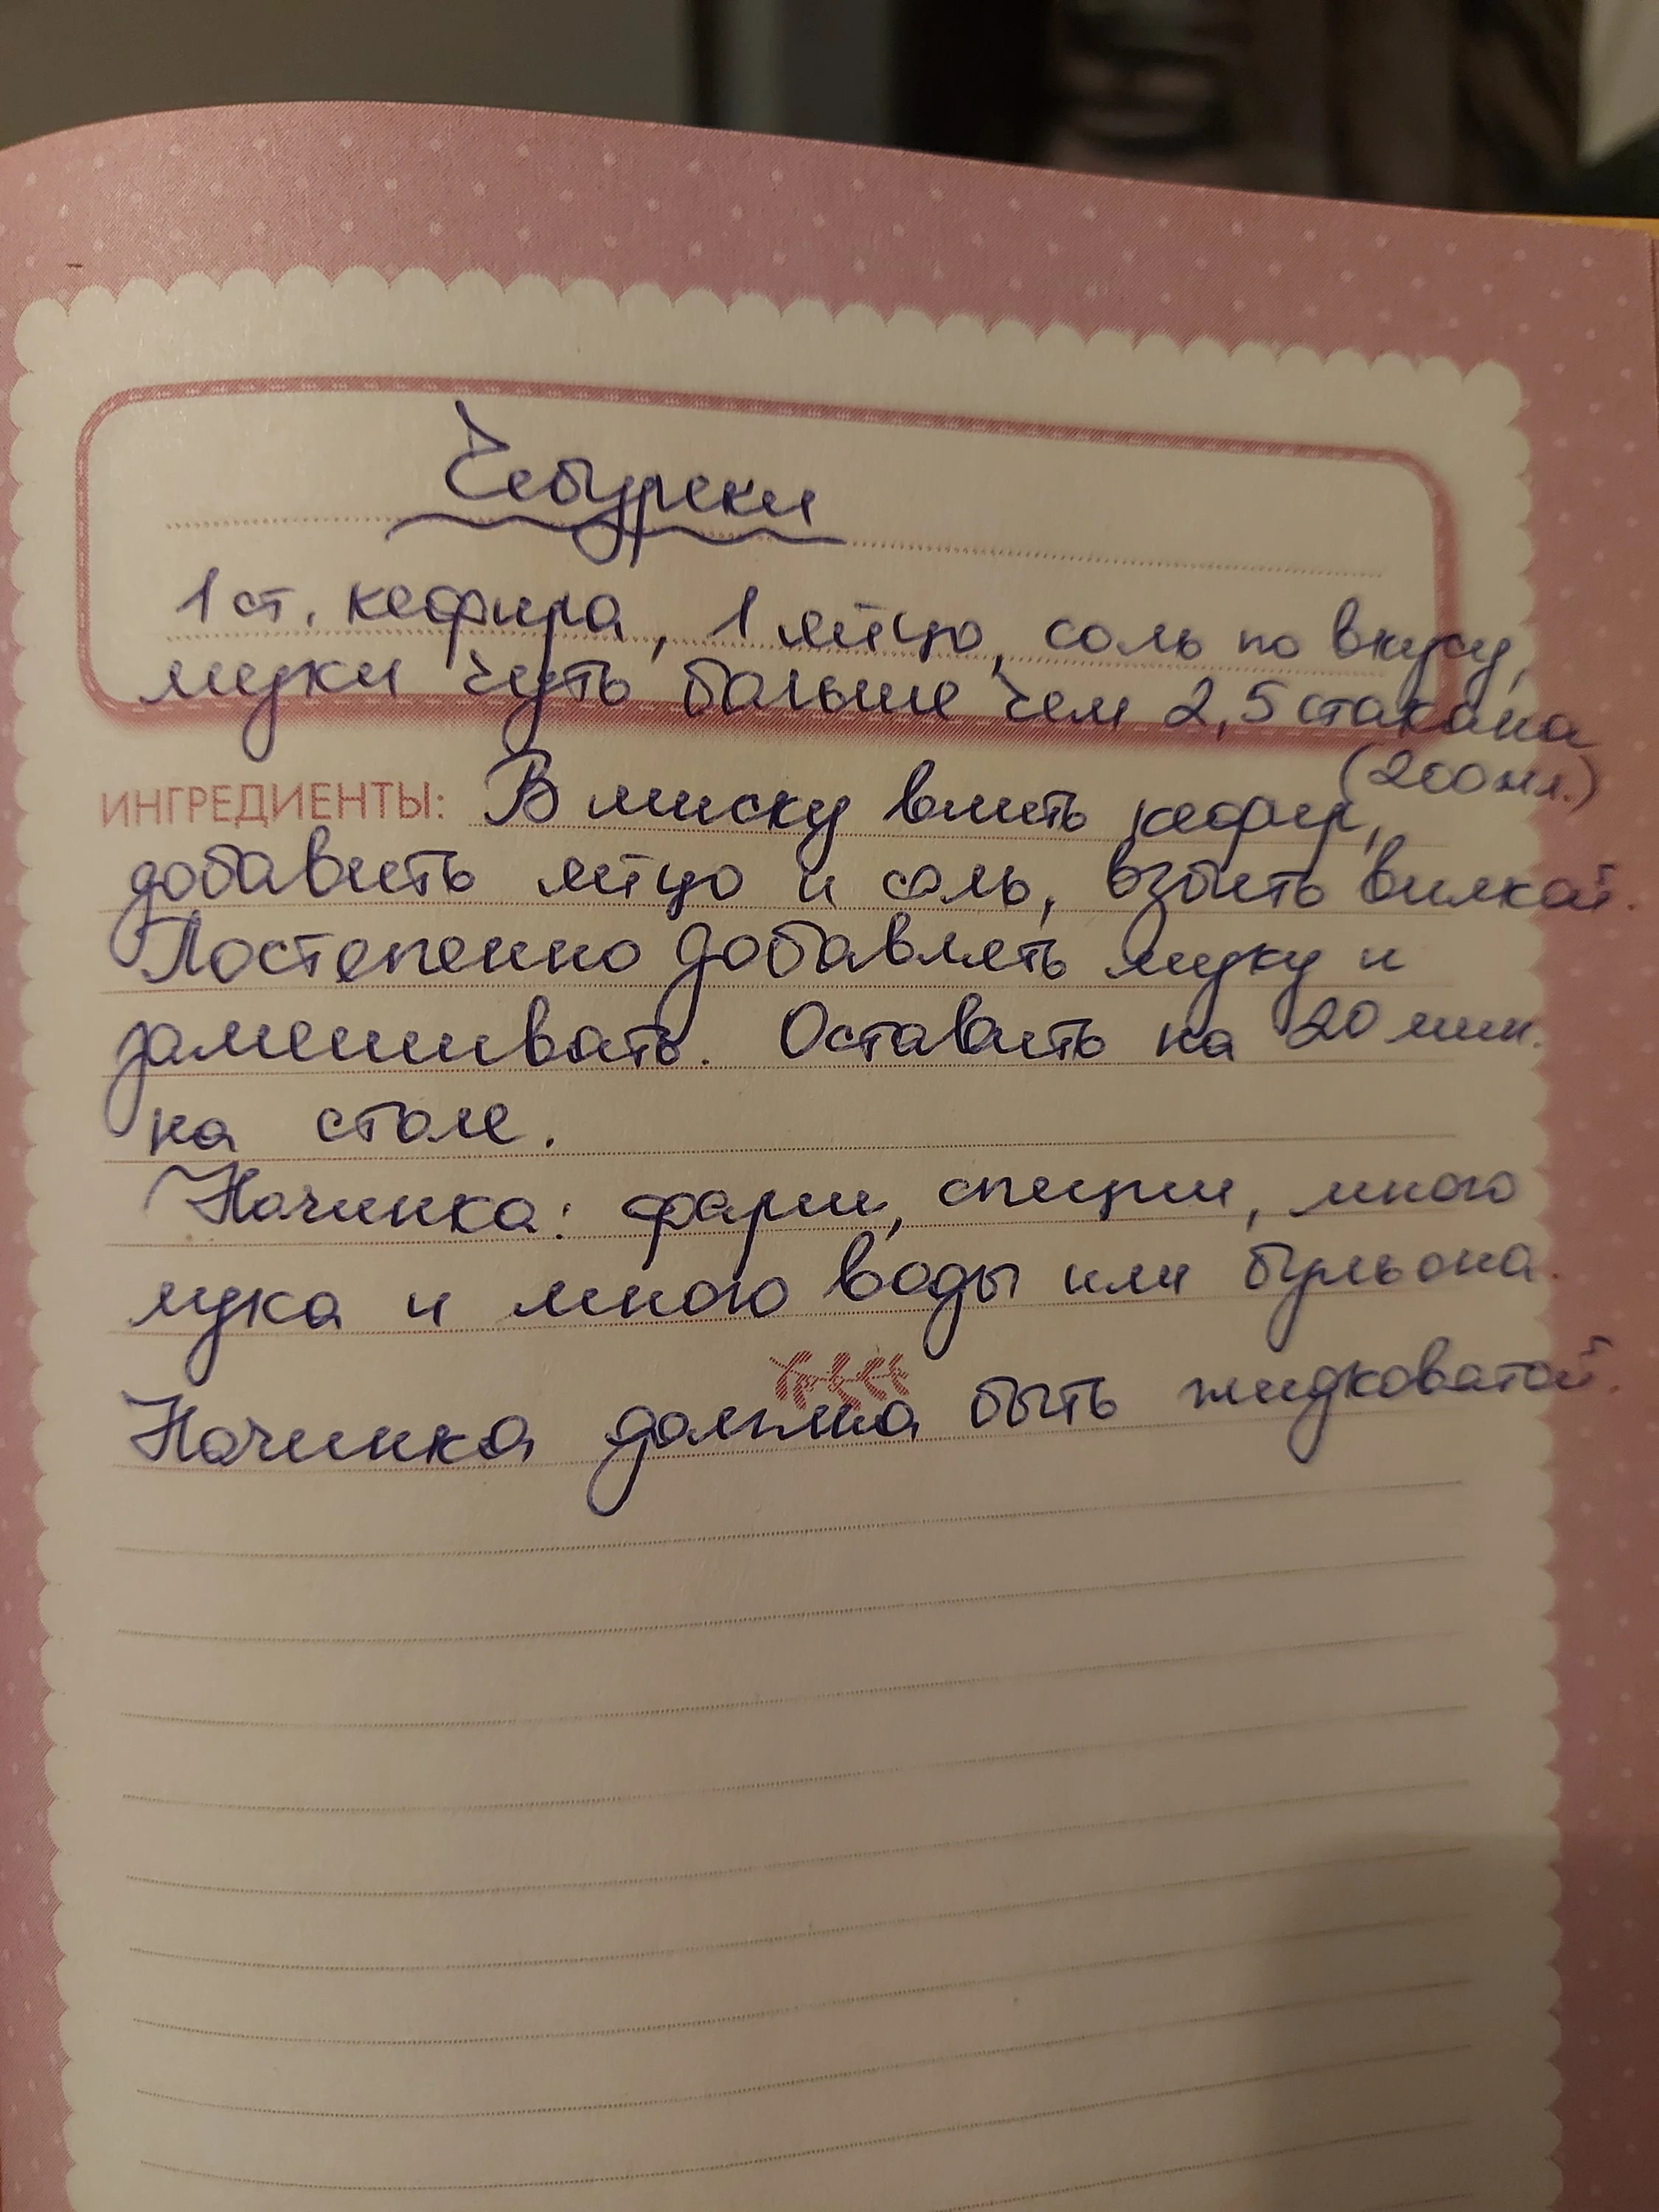 Чебуреки
1 ст. кефира, 1 яйцо, соль по вкусу,
муки чуть больше чем 2,5 стакана
(200 мл.)
ИНГРЕДИЕНТЫ: В миску влить кефир,
добавить яйцо и соль, взбить вилкой.
Постепенно добавлять муку и
замешивать. Оставить на 20 мин.
на столе.
Начинка: фарш, специи, много
лука и много воды или бульона.
Начинка должна быть жидковатой.